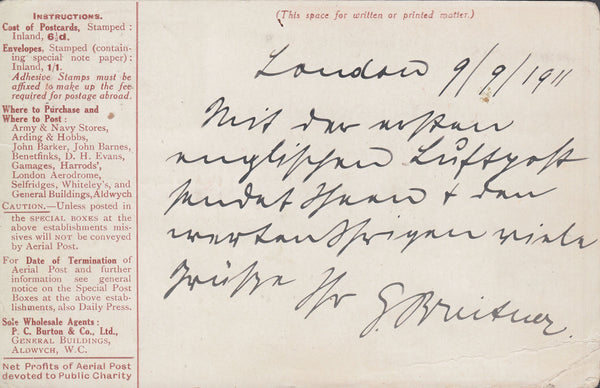 INSTRUCTIONS.
Cost of Postcards, Stamped :
Inland, 6½d.
Envelopes, Stamped (contain-
ing special note paper) :
Inland, 1/1.
Adhesive Stamps must be
affixed to make up the fee
required for postage abroad.
Where to Purchase and
Where to Post :
Army & Navy Stores,
Arding & Hobbs,
John Barker, John Barnes,
Benetfinks, D. H. Evans,
Gamages, Harrods',
London Aerodrome,
Selfridges, Whiteley's, and
General Buildings, Aldwych
CAUTION.—Unless posted in
the SPECIAL BOXES at the
above establishments mis-
sives will NOT be conveyed
by Aerial Post.
For Date of Termination of
Aerial Post and further
information see general
notice on the Special Post
Boxes at the above estab-
lishments, also Daily Press.
Sole Wholesale Agents :
P. C. Burton & Co., Ltd.,
GENERAL BUILDINGS,
ALDWYCH, W.C.
Net Profits of Aerial Post
devoted to Public Charity
(This space for written or printed matter.)
London 9/9/1911
Mit der ersten
englischen Luftpost
sendet Ihnen + den
werten Ihrigen viele
Grüße Ihr